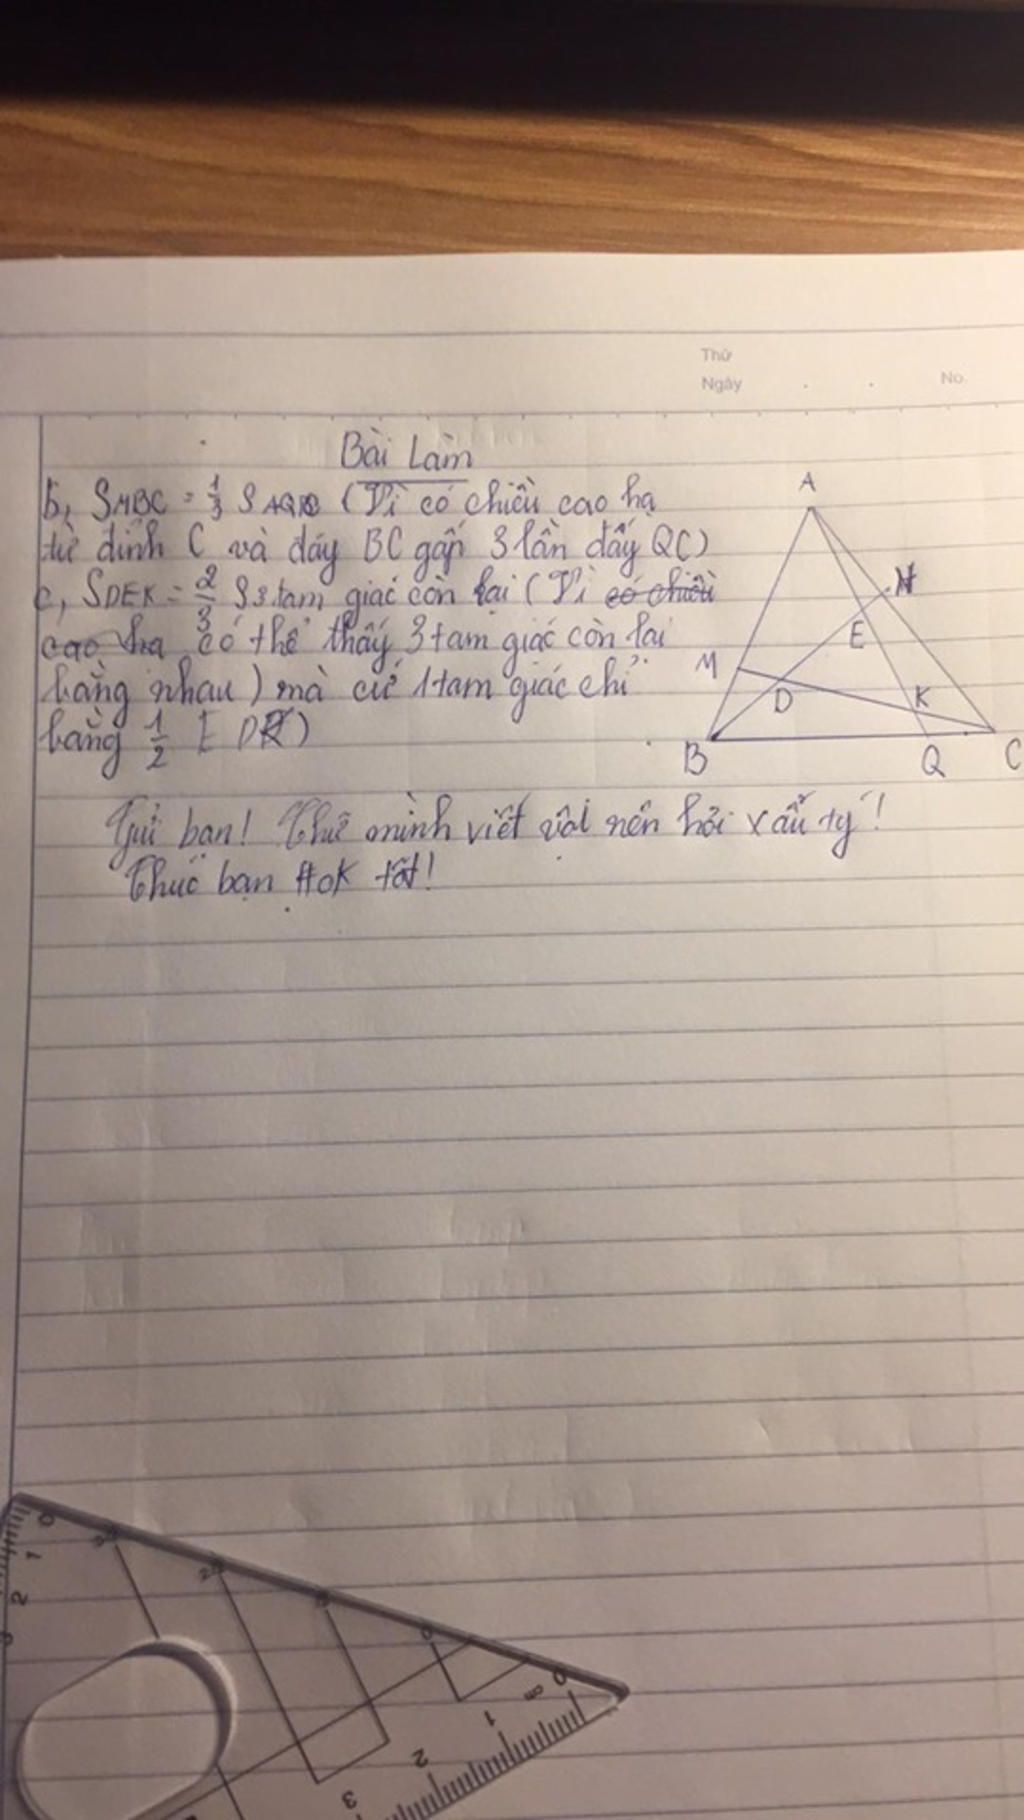 Thứ
Ngày
No.
Bài Làm
b, SMBC = 1/3 SAQC (Vì có chiều cao hạ
từ đỉnh C và đáy BC gấp 3 lần đáy QC)
c, SDEK = 2/3 S3 tam giác còn lại (Vì có chiều
cao hạ có thể thấy 3 tam giác còn lại
bằng nhau) mà cứ 1 tam giác chỉ
bằng 1/2 EDK)
A
N
E
M
D
K
B
Q
C
Gửi bạn! Chữ mình viết vội nên hơi xấu tý!
Chúc bạn Hok tốt!
0
1
2
3
0
cm
1
2
3